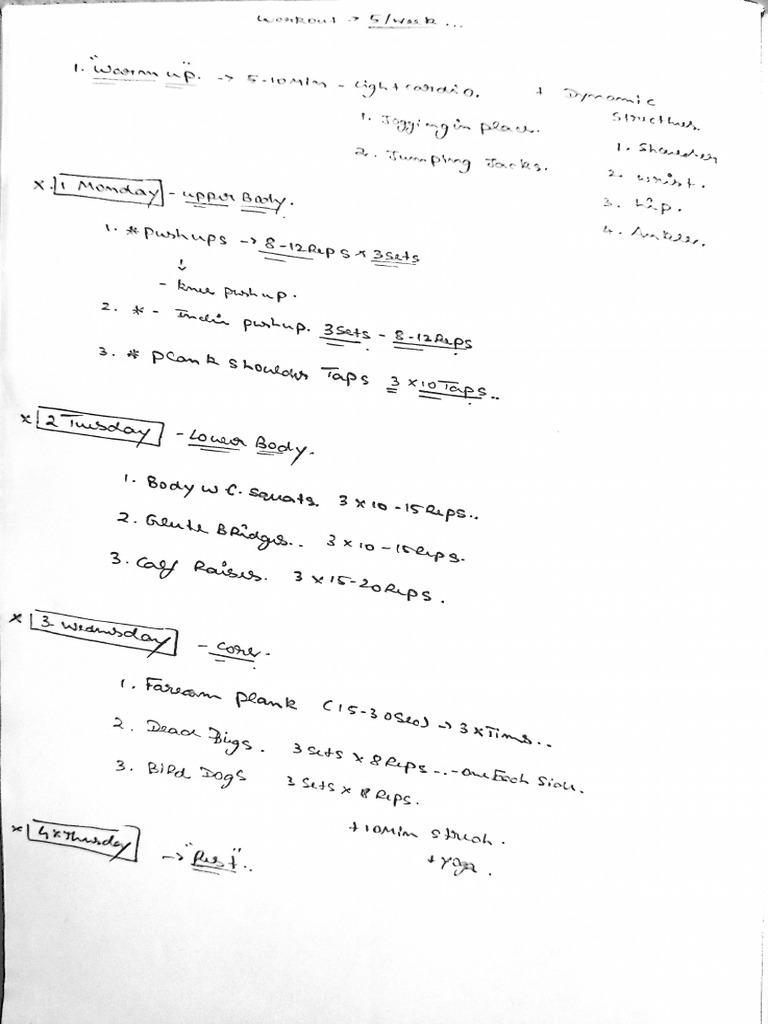 Workout → 5/week...
1. "Warm up". → 5-10Min - Light cardio. + Dynamic Stretches.
1. Jogging in place.
2. Jumping Jacks.
1. Shoulder
2. wrist.
3. Hip.
4. Ankle.
x. 1 Monday - upper Body.
1. * pushups → 8-12 Reps x 3 sets
↓
- knee pushup.
2. * - Indin pushup. 3 Sets - 8-12 Reps
3. * Plank Shoulder Taps 3 x 10 Taps..
x 2 Tuesday - Lower Body.
1. Body w C. squats. 3 x 10 - 15 Reps..
2. Glute Bridges.. 3 x 10 - 15 Reps.
3. Calf Raises. 3 x 15-20 Reps.
x 3. Wednesday - Core.
1. Farearm plank (15-30 Sec) → 3 x Times..
2. Dead Bugs. 3 Sets x 8 Reps... - one Each Side.
3. Bird Dogs 3 Sets x 8 Reps.
+ 10 Min strech.
+ Yoga.
x 4 x Thursday → "Rest"..